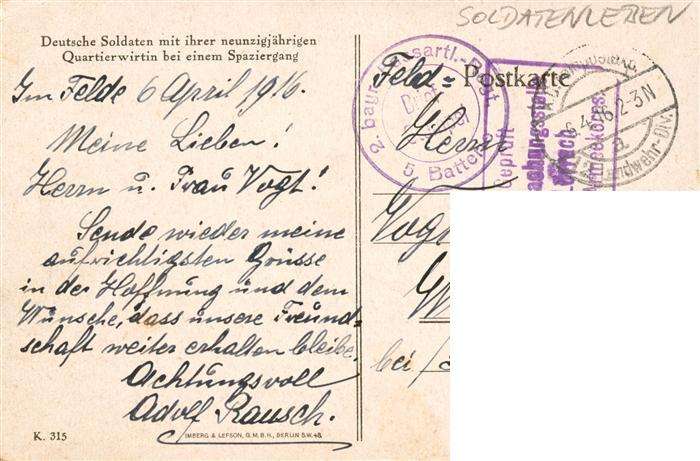 SOLDATENLEBEN
Deutsche Soldaten mit ihrer neunzigjährigen
Quartierwirtin bei einem Spaziergang
Im Felde 6 April 1916.
Meine Lieben!
Herrn u. Frau Vogt!
Sende wieder meine
aufrichtigsten Grüsse
in der Hoffnung und dem
Wunsche, dass unsere Freund=
schaft weiter erhalten bleibe.
Achtungsvoll
Adolf Rausch.
K. 315
IMBERG & LEFSON, G.M.B.H., BERLIN S.W. 48.
Feld= Postkarte
Herrn
bei
2. bayr.
5. Batterie
Geprüft
6.4.16.2-3N
Landwehr-Div.